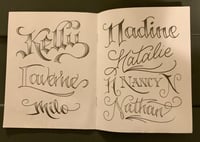 Kelly
Laverne
Milo
Nadine
Natalie
Nancy
Nathan